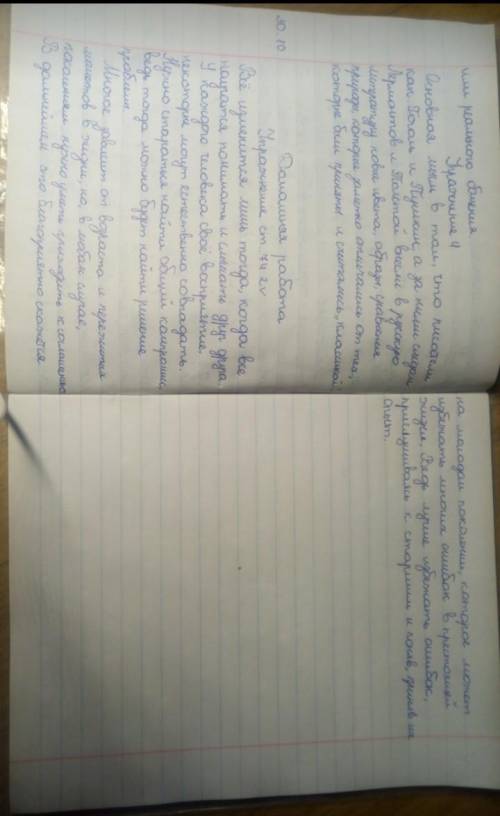 или реального общения
Упражнение 4
Основная мысль в том, что писатели
как Гоголь и Пушкин а за ними следом
Лермонтов и Толстой внесли в русскую
литературу новые цвета, образы, сравнения
природы которые заметно отличались от тех,
которые были приняты и считались "классикой"
20.10
Домашняя работа
Упражнение ст 74 2v
Всё изменится лишь тогда, когда все
научатся понимать и слышать друг друга.
У каждого человека своё восприятие.
некоторые могут естественно совпадать.
Нужно стараться найти общий компромис,
ведь тогда можно будет найти решение
проблемы.
Многое зависит от возраста и пережитых
моментов в жизни, но, в любом случае,
поколениям нужно уметь приходить к соглашению
В дальнейшем это благоприятно скажется
на молодом поколении, которое может
избежать многих ошибок в предстоящей
жизни. Ведь лучше избежать ошибок,
прислушиваясь к старшим и поняв, приняв их
опыт.